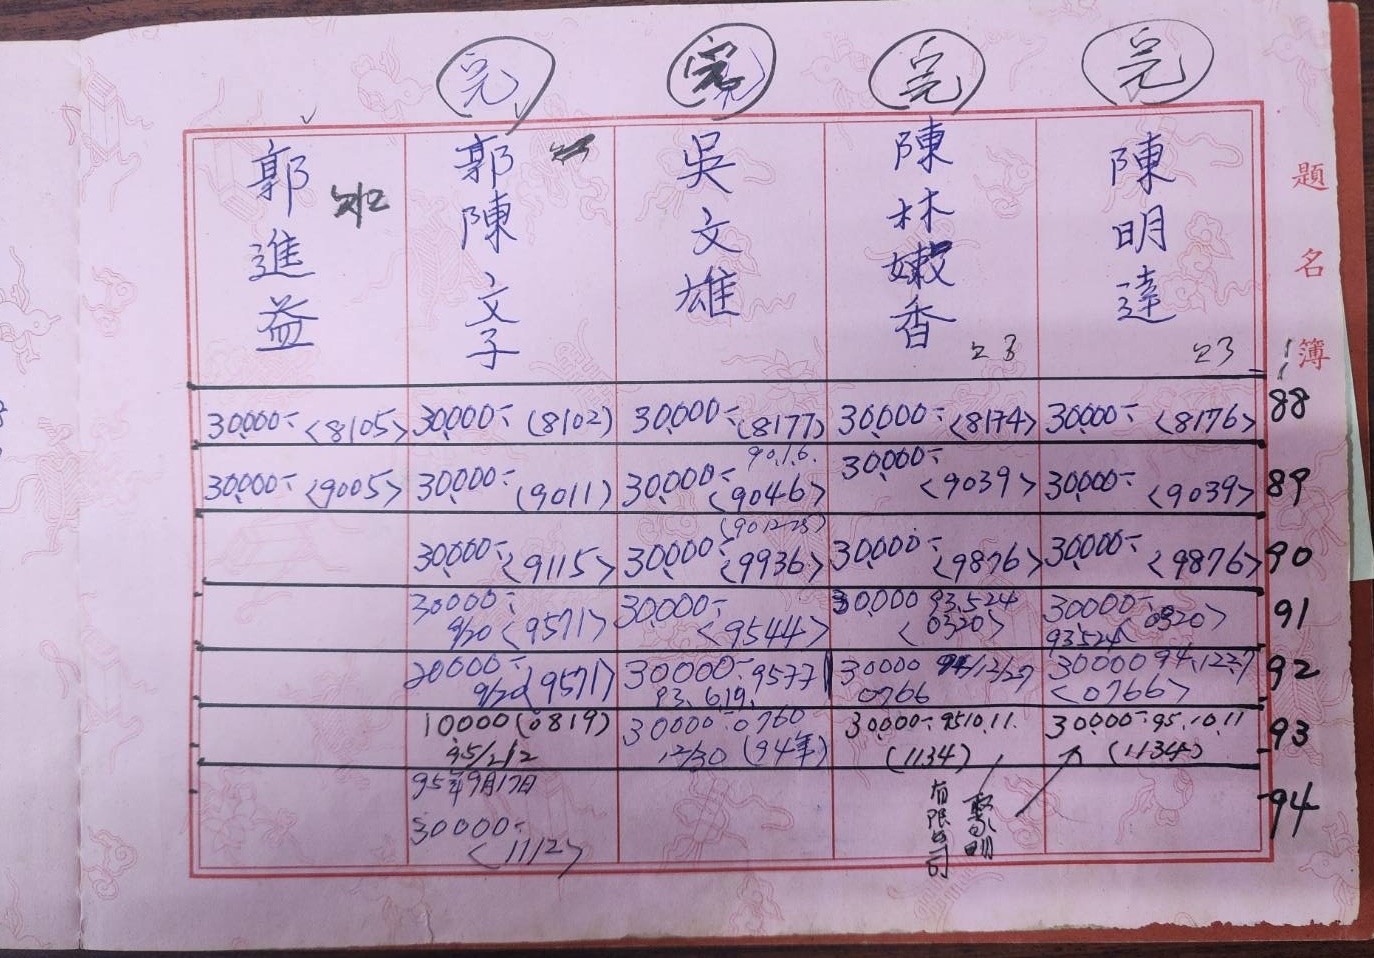 題名簿
完
完
完
完
陳明達
23
陳林嫩香
23
吳文雄
郭陳文子
郭進益
30,000- <8105>
30,000- (8102)
30,000- (8177)
30,000- <8174>
30,000- <8176>
88
90.1.6.
30,000- <9005>
30,000- (9011)
30,000- <9046>
30,000- <9039>
30,000- <9039>
89
30,000- <9115>
30,000- <9936>
30,000- <9876>
30,000- <9876>
90
30000-
9/20 <9571>
30,000-
<9544>
30,000 93.5.24
<0320>
30000- <0320>
93.5.24
91
20000-
9/20 (9571)
30000- 9577
93.6.19.
30000 94/12/27
0766
30000 94.12.27
<0766>
92
10000 (0819)
95/2/2
30000- 0760
12/30 (94年)
30,000- 95.10.11.
(1134)
30,000- 95.10.11
(1134)
93
95年9月17日
30000-
<1112>
有限公司
94